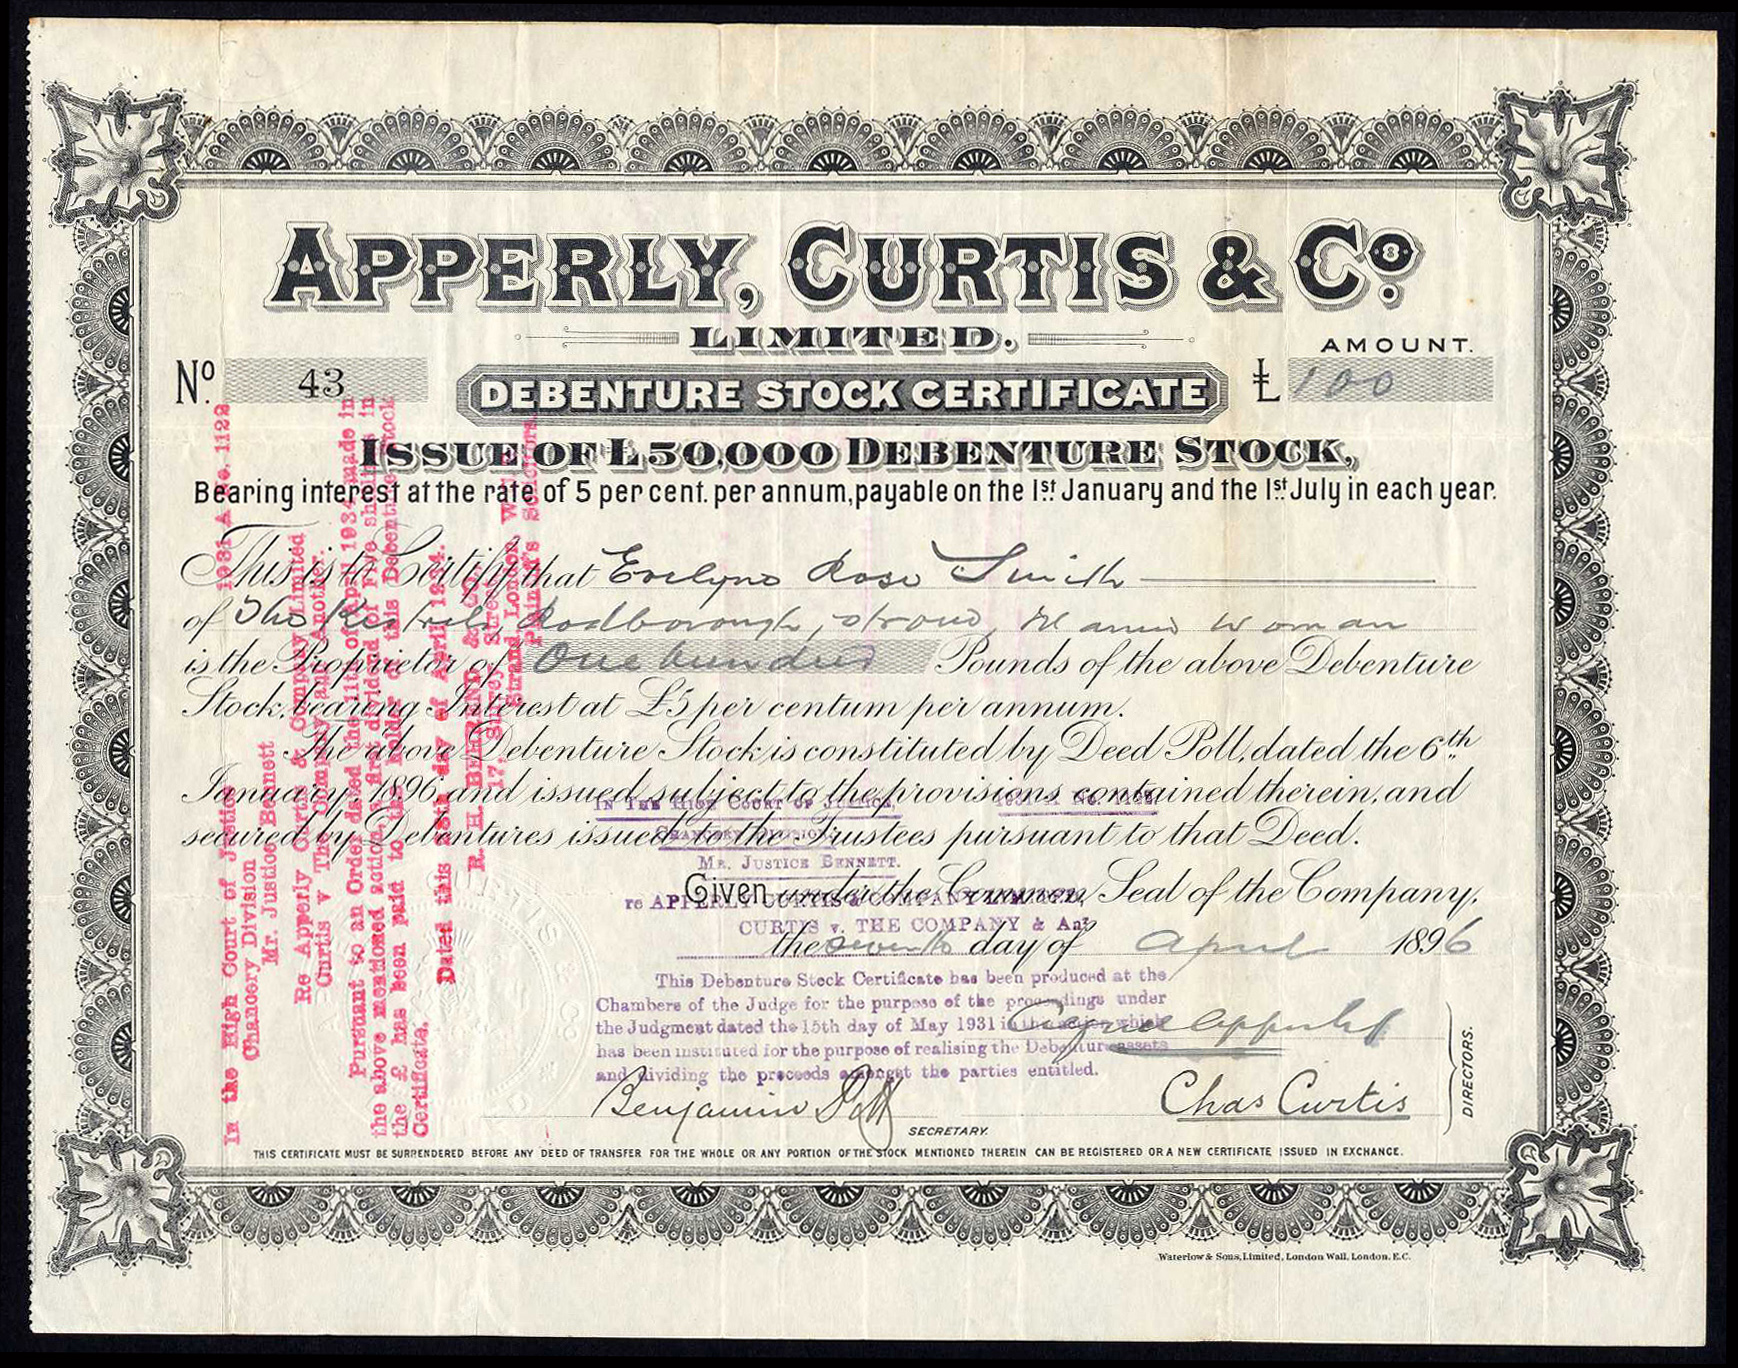 APPERLY, CURTIS & Cº.
LIMITED.
AMOUNT.
Nº. 43
DEBENTURE STOCK CERTIFICATE
£ 100
ISSUE OF £50,000 DEBENTURE STOCK,
Bearing interest at the rate of 5 per cent. per annum, payable on the 1st January and the 1st July in each year.
This is to Certify that Evelyne Rose Smith
of The Rodborough, Stroud, Woman
is the Proprietor of One hundred Pounds of the above Debenture
Stock, bearing Interest at £5 per centum per annum.
The above Debenture Stock is constituted by Deed Poll, dated the 6th
January, 1896 and issued subject to the provisions contained therein, and
secured by Debentures issued to the Trustees pursuant to that Deed.
Given under the Common Seal of the Company,
the seventh day of April 1896
Chas Curtis
DIRECTORS.
Benjamin
SECRETARY.
THIS CERTIFICATE MUST BE SURRENDERED BEFORE ANY DEED OF TRANSFER FOR THE WHOLE OR ANY PORTION OF THE STOCK MENTIONED THEREIN CAN BE REGISTERED OR A NEW CERTIFICATE ISSUED IN EXCHANGE.
Waterlow & Sons, Limited, London Wall, London, E.C.
IN THE HIGH COURT OF JUSTICE, 1931 A No. 1122
CHANCERY DIVISION.
MR. JUSTICE BENNETT.
re APPERLY CURTIS & COMPANY LIMITED,
CURTIS v. THE COMPANY & Anr
This Debenture Stock Certificate has been produced at the
Chambers of the Judge for the purpose of the proceedings under
the Judgment dated the 15th day of May 1931 in the action which
has been instituted for the purpose of realising the Debenture assets
and dividing the proceeds amongst the parties entitled.
In the High Court of Justice 1931 A No. 1122
Chancery Division
Mr. Justice Bennett
Re Apperly Curtis & Company Limited
Curtis v The Company and Another.
Pursuant to an Order dated the 11th of April 1934 made in
the above mentioned action, a first dividend of Five shillings in
the £ has been paid to the holder of this Debenture Stock
Certificate.
Dated this day of April 1934.
R. H. BEHREND & CO.
17, Surrey Street,
Strand, London, W.C.
Plaintiff's Solicitors.